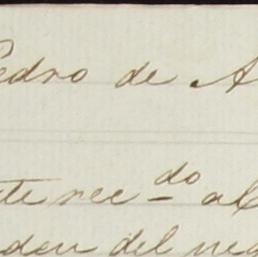 Pedro de A
te rec-do al
den del neg